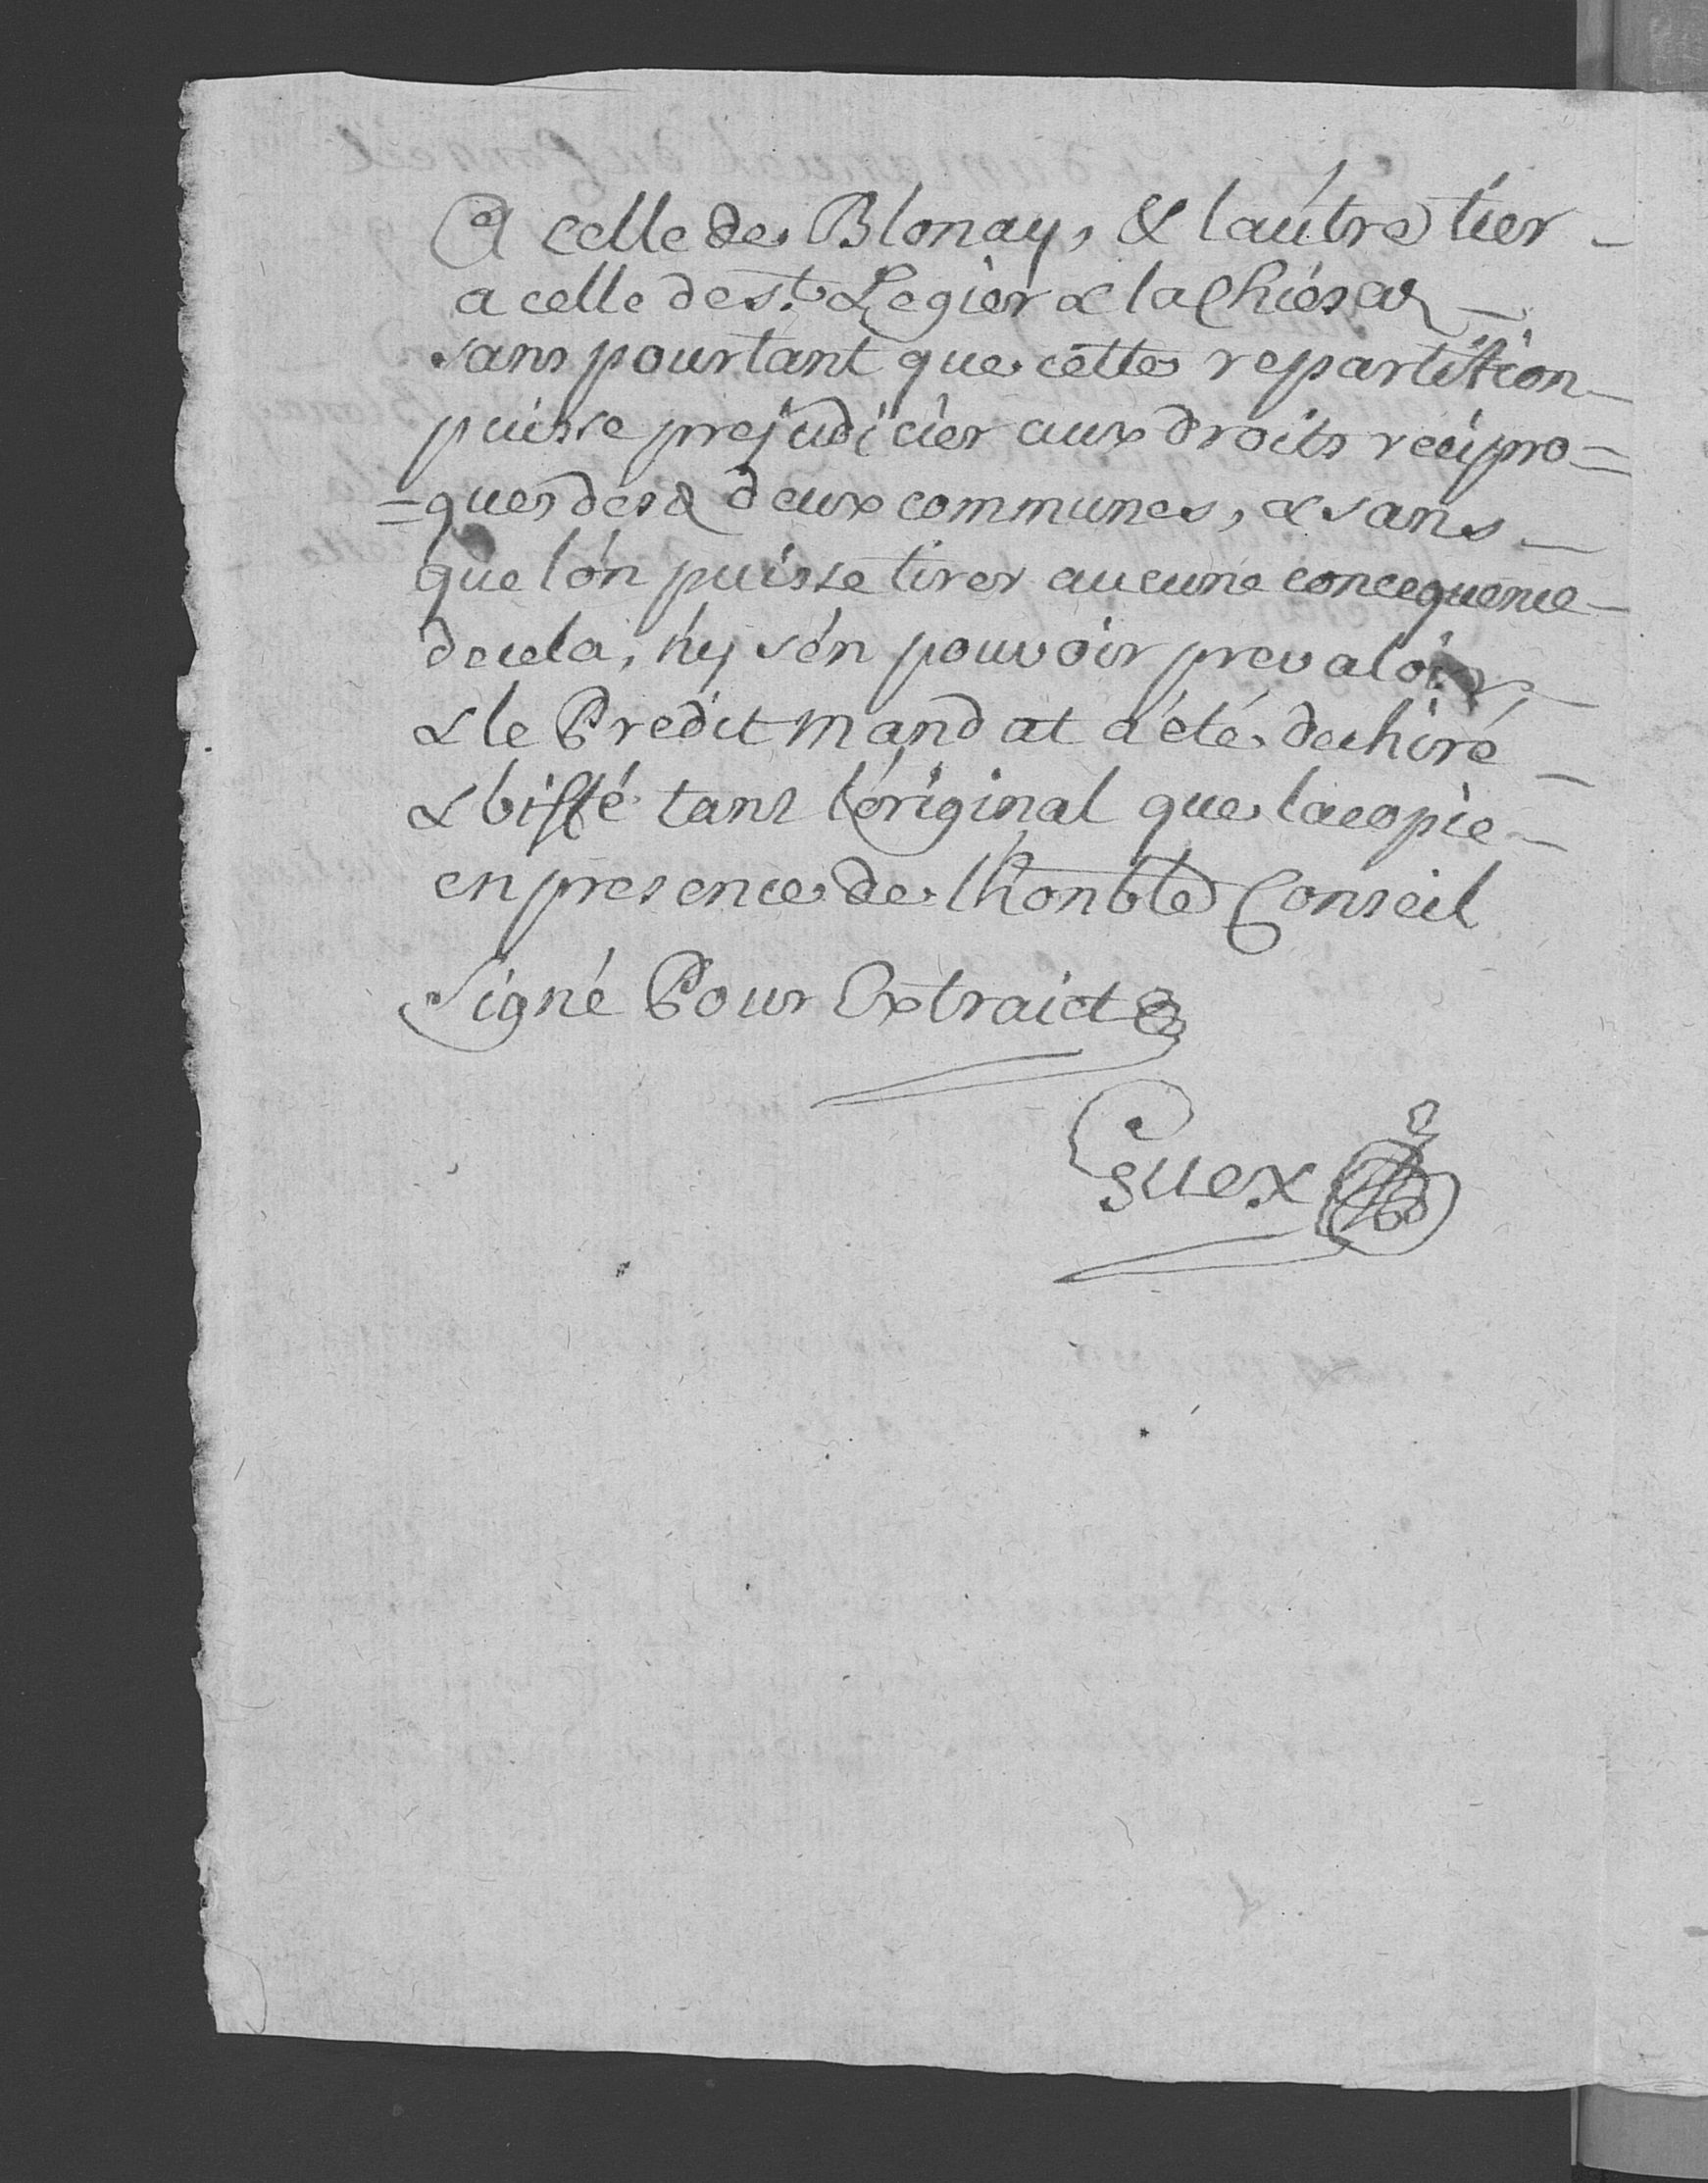 A celle de Blonay, & lautre tier -
a celle de st. Legier & la Chiésaz -
sans pourtant que cette repartition -
puisse prejudicier aux droits recipro=
=ques des deux communes, & sans -
que lón puisse tirer aucune concequence -
de cela, ny sén pouvoir prevaloir, -
& le Predit mandat a été dechiré -
& biffé tant lóriginal que la copie -
en presence de lhonble Conseil
Signé Pour Extraict
Guex